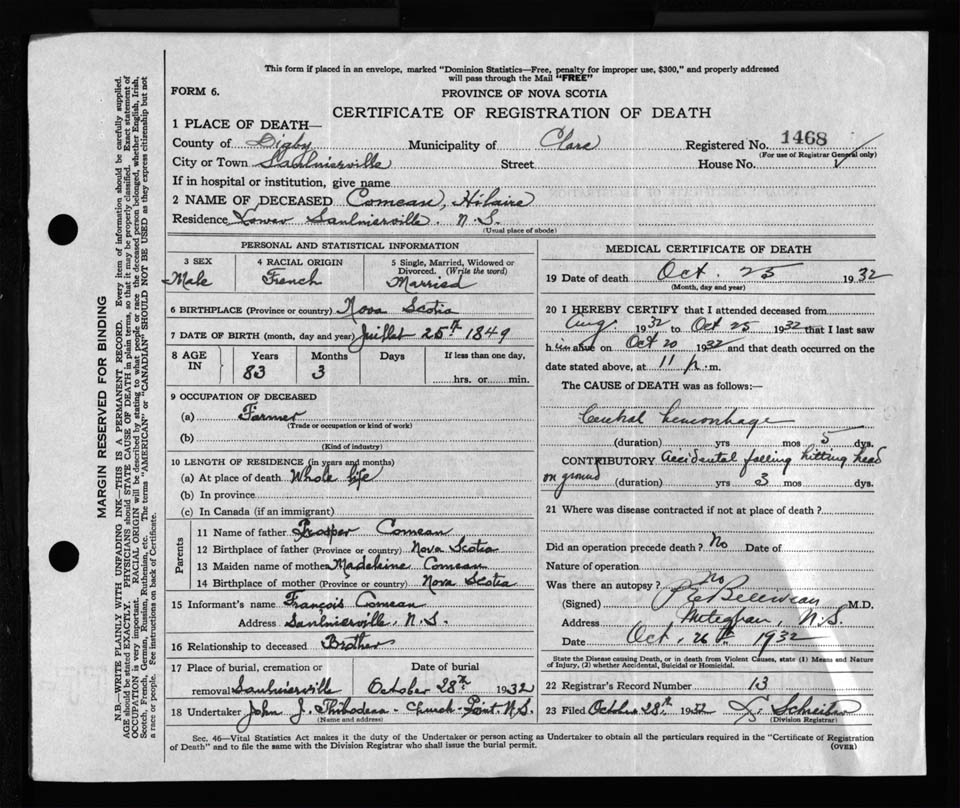 This form if placed in an envelope, marked "Dominion Statistics—Free, penalty for improper use, $300," and properly addressed
will pass through the Mail "FREE"
FORM 6.
PROVINCE OF NOVA SCOTIA
CERTIFICATE OF REGISTRATION OF DEATH
1 PLACE OF DEATH—
County of Digby Municipality of Clare Registered No. 1468
(For use of Registrar General only)
City or Town Saulnierville Street House No.
If in hospital or institution, give name
2 NAME OF DECEASED Comeau, Hilaire
Residence Lower Saulnierville. N.S.
(Usual place of abode)
PERSONAL AND STATISTICAL INFORMATION
3 SEX 4 RACIAL ORIGIN 5 Single, Married, Widowed or
Divorced. (Write the word)
Male French Married
6 BIRTHPLACE (Province or country) Nova Scotia
7 DATE OF BIRTH (month, day and year) Juillet 25th 1849
8 AGE IN Years Months Days If less than one day,
83 3 hrs. or min.
9 OCCUPATION OF DECEASED
(a) Farmer
(Trade or occupation or kind of work)
(b)
(Kind of industry)
10 LENGTH OF RESIDENCE (in years and months)
(a) At place of death Whole life
(b) In province
(c) In Canada (if an immigrant)
Parents
11 Name of father Prosper Comeau
12 Birthplace of father (Province or country) Nova Scotia
13 Maiden name of mother Madeleine Comeau
14 Birthplace of mother (Province or country) Nova Scotia
15 Informant's name François Comeau
Address Saulnierville, N.S.
16 Relationship to deceased Brother
17 Place of burial, cremation or Date of burial
removal Saulnierville October 28th 1932
18 Undertaker John J. Thibodeau - Church-Point, N.S.
(Name and address)
MEDICAL CERTIFICATE OF DEATH
19 Date of death Oct. 25 1932
(Month, day and year)
20 I HEREBY CERTIFY that I attended deceased from
Aug. 1932 to Oct 25 1932 that I last saw
h im alive on Oct 20 1932 and that death occurred on the
date stated above, at 11 p. m.
The CAUSE of DEATH was as follows:—
hemorrhage
(duration) yrs mos 5 dys.
CONTRIBUTORY Accidental falling hitting head
on ground (duration) yrs 3 mos dys.
21 Where was disease contracted if not at place of death?
Did an operation precede death? No Date of
Nature of operation
Was there an autopsy? no
(Signed) Belliveau M.D.
Address Meteghan, N.S.
Date Oct, 26th 1932
State the Disease causing Death, or in death from Violent Causes, state (1) Means and Nature
of Injury, (2) whether Accidental, Suicidal or Homicidal.
22 Registrar's Record Number 13
23 Filed October 28th 1932 Schreiber
(Division Registrar)
Sec. 46—Vital Statistics Act makes it the duty of the Undertaker or person acting as Undertaker to obtain all the particulars required in the "Certificate of Registration
of Death" and to file the same with the Division Registrar who shall issue the burial permit.
(OVER)
MARGIN RESERVED FOR BINDING
N.B.—WRITE PLAINLY WITH UNFADING INK—THIS IS A PERMANENT RECORD. Every item of information should be carefully supplied.
AGE should be stated EXACTLY. PHYSICIANS should STATE CAUSE OF DEATH in plain terms, so that it may be properly classified. Exact statement of
OCCUPATION is very important. RACIAL ORIGIN will be described by stating to what people or race the deceased person belonged, whether English, Irish,
Scotch, French, German, Russian, Ruthenian, etc. The terms "AMERICAN" or "CANADIAN" SHOULD NOT BE USED as they express citizenship but not
a race or people. See instructions on back of Certificate.